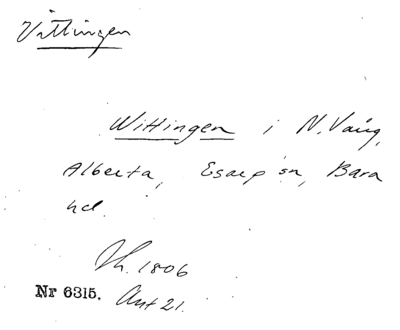 Vittingen
Wittingen i N. Vång,
Alberta, Esarp sn, Bara
hd.
Th. 1806
Nr 6315. Ant 21.